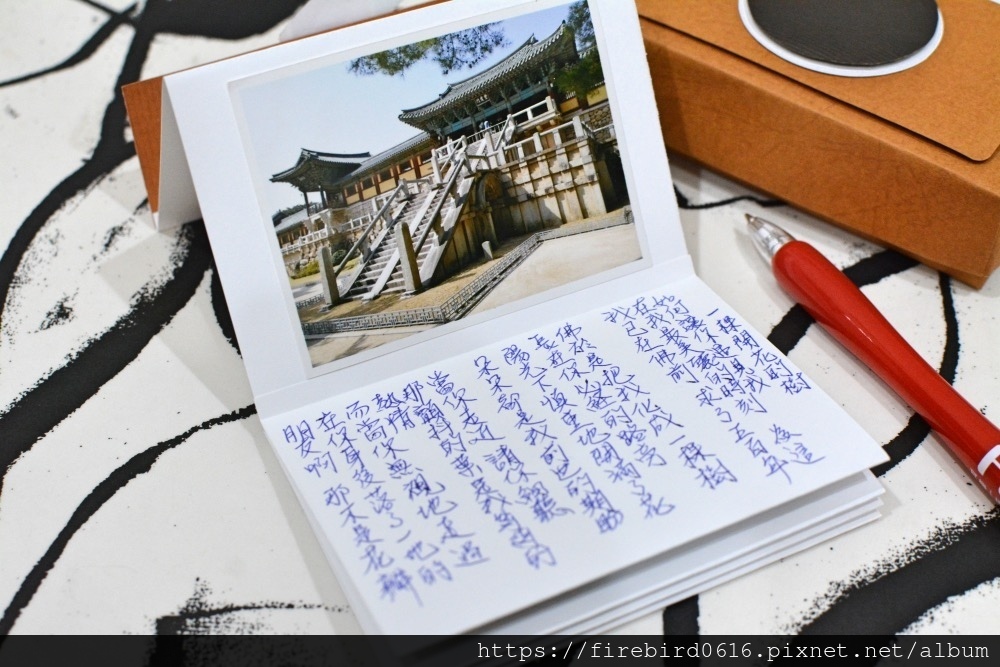 一棵開花的樹
如何讓你遇見我
在我最美麗的時刻 為這
我已在佛前 求了五百年
佛於是把我化成一棵樹
長在你必經的路旁
陽光下慎重地開滿了花
朵朵都是我前世的期盼
當你走近 請你細聽
那顫抖的葉是我等待的
熱情
而當你無視地走過
在你身後落了一地的
朋友啊 那不是花瓣
https://firebird0616.pixnet.net/album